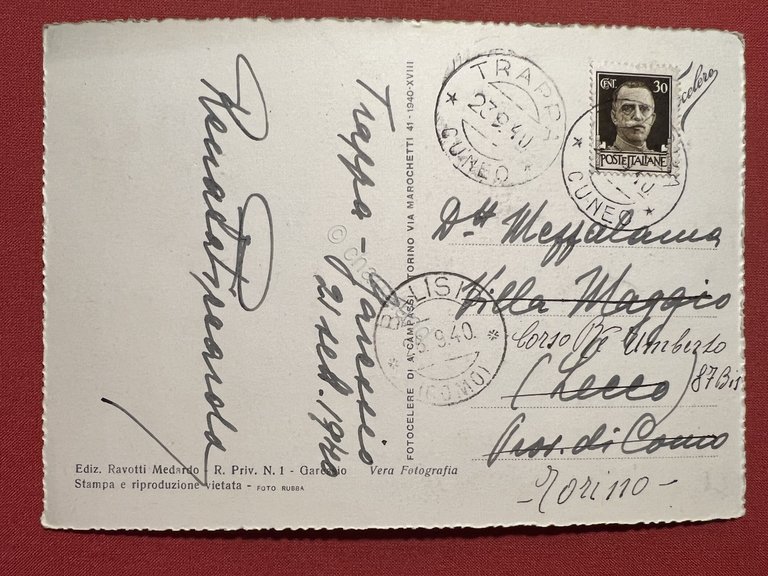 Trappa - Garessio
21 sett. 1940
FOTOCELERE DI A. CAMPASSI TORINO VIA MAROCHETTI 41 - 1940-XVIII
TRAPPA
23.9.40
CUNEO
CENT. 30
POSTE ITALIANE
CUNEO
Villa Maggio
Corso Re Umberto
87 Bis
(Lecco)
Prov. di Como
- Torino -
(COMO)
Ediz. Ravotti Medardo - R. Priv. N. 1 - Garessio
Vera Fotografia
Stampa e riproduzione vietata - FOTO RUBBA